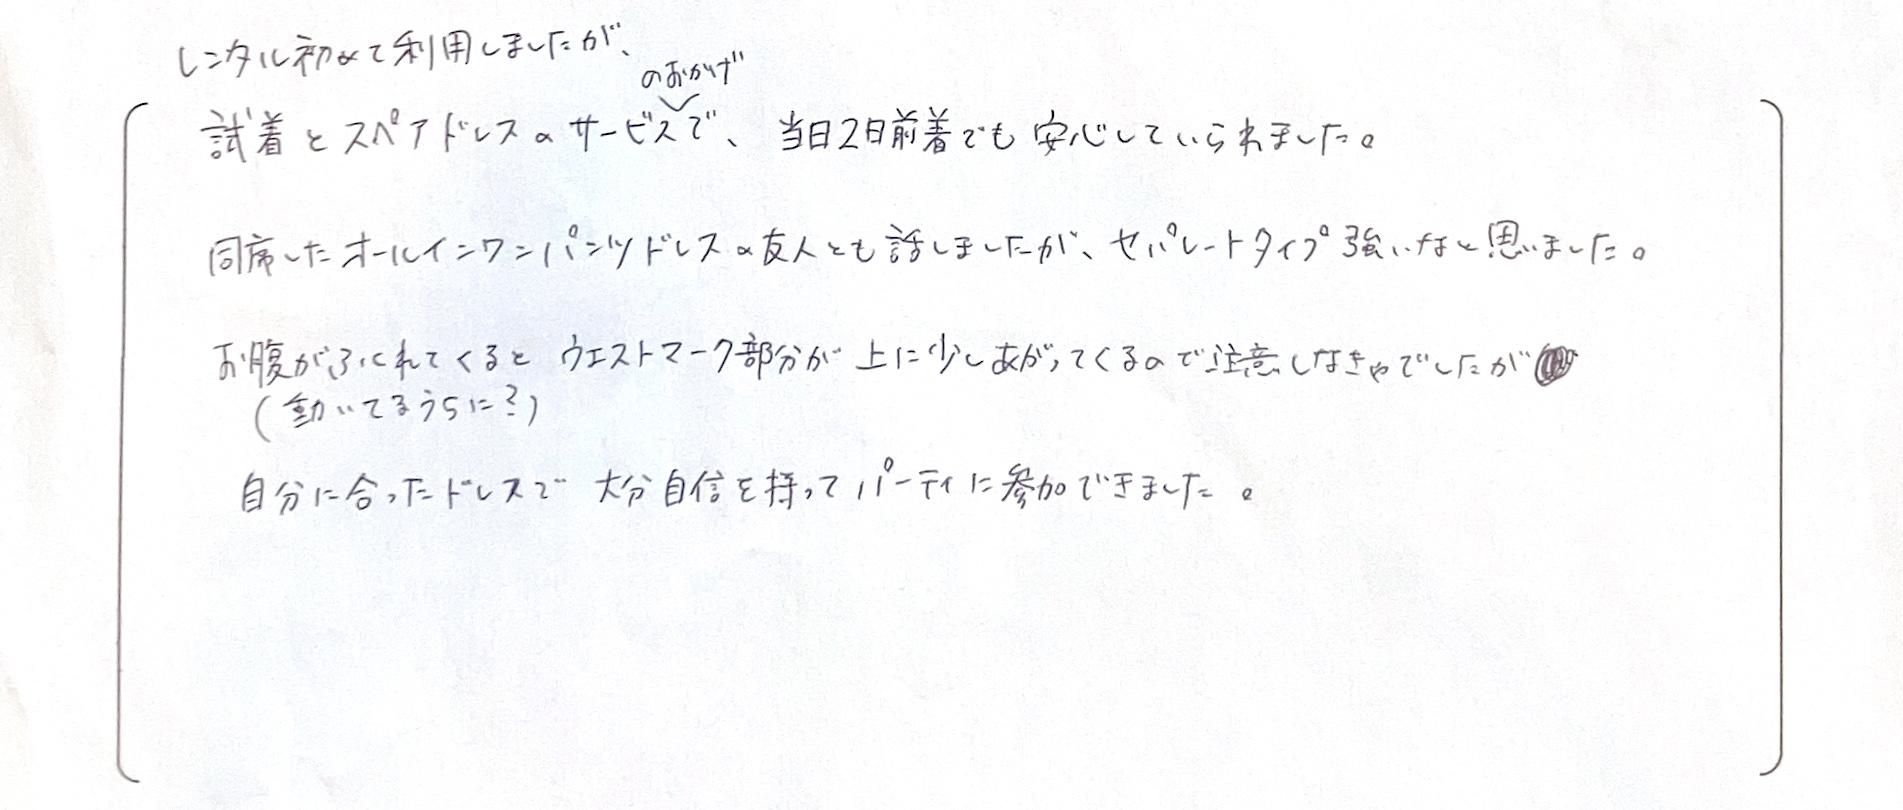 レンタル初めて利用しましたが、
のおかげ
試着とスペアドレスのサービスで、当日2日前着でも安心していられました。
同席したオールインワンパンツドレスの友人とも話しましたが、セパレートタイプ強いなと思いました。
お腹がふくれてくると ウエストマーク部分が上に少しあがってくるので注意しなきゃでしたが
(動いてるうちに?)
自分に合ったドレスで 大分自信を持ってパーティに参加できました。